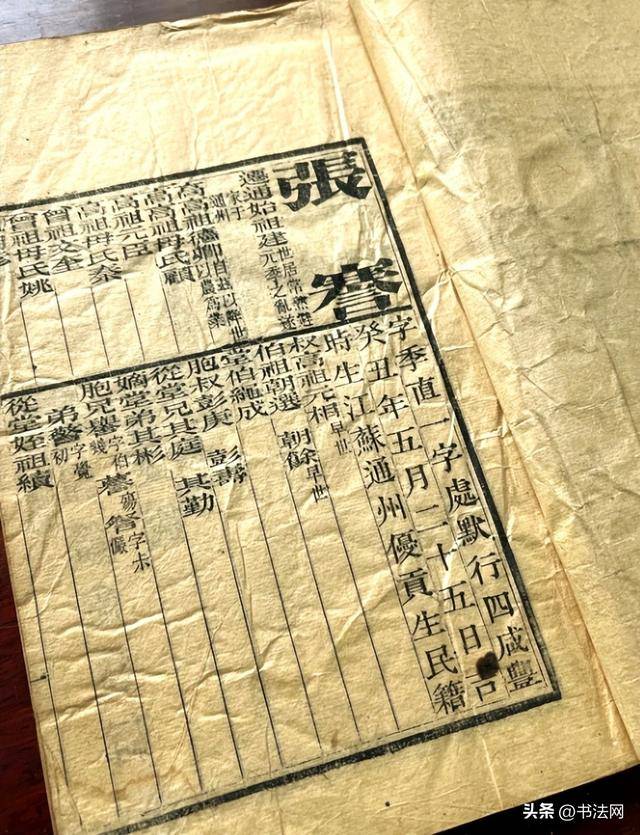 張謇
字季直一字處默行四咸豐
癸丑年五月二十五日吉
時生江蘇通州優貢生民籍
遷通始祖建 世居常熟避元季之亂遂家于通州
高高祖德卿 自遷以降世以農為業
高高祖母氏顧
高祖元臣
高祖母氏秦
曾祖文奎
曾祖母氏姚
叔高祖元相 早世
伯祖朝選 朝餘早世
堂伯純成
胞叔彭庚 彭
從堂兄其庭 其勤
嫡堂弟其彬
胞兄譽
弟警
從堂姪祖績
头条 @书法网